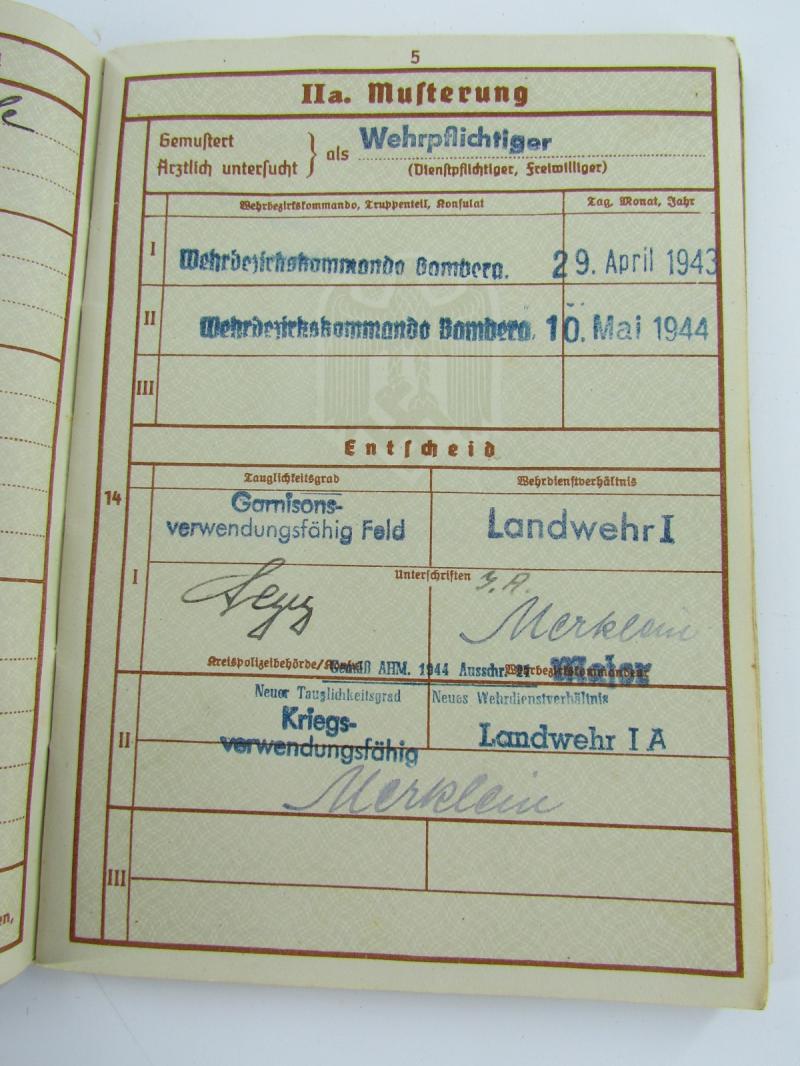 5
IIa. Musterung
Gemustert
Ärztlich untersucht } als Wehrpflichtiger
(Dienstpflichtiger, Freiwilliger)
Wehrbezirkskommando, Truppenteil, Konsulat
Tag, Monat, Jahr
I
Wehrbezirkskommando Bamberg. 29. April 1943
II
Wehrbezirkskommando Bamberg. 10. Mai 1944
III
Entscheid
14
Tauglichkeitsgrad
Wehrdienstverhältnis
I
Garnisons-
verwendungsfähig Feld
Landwehr I
Unterschriften
I.A.
Merklein
Kreispolizeibehörde/
Gemäß AHM. 1944 Ausschn. 27
Wehrbezirkskommandeur
Major
II
Neuer Tauglichkeitsgrad
Neues Wehrdienstverhältnis
Kriegs-
verwendungsfähig
Landwehr I A
Merklein
III
en,